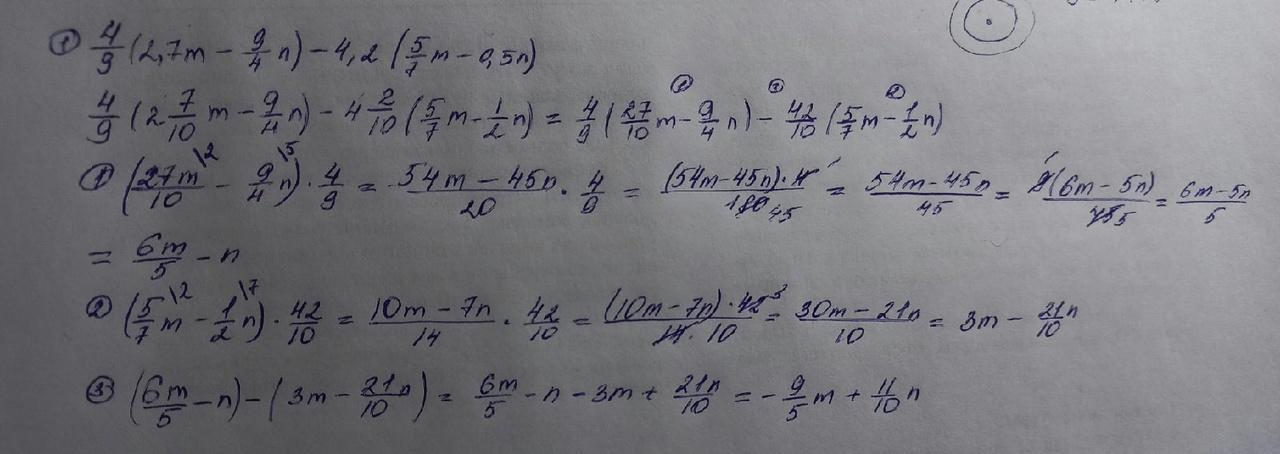 ① 4/9 (2,7m − 9/4 n) − 4,2 (5/7 m − 0,5n)
4/9 (2 7/10 m − 9/4 n) − 4 2/10 (5/7 m − 1/2 n) = 4/9 (27/10 m − 9/4 n) − 42/10 (5/7 m − 1/2 n)
① (27m/10 \2 − 9/4 n \5) · 4/9 = 54m − 45n/20 · 4/9 = (54m − 45n) · 4/180 45 = 54m − 45n/45 = 9(6m − 5n)/45 5 = 6m − 5n/5
= 6m/5 − n
② (5/7 m \2 − 1/2 n \7) · 42/10 = 10m − 7n/14 · 42/10 = (10m − 7n) · 42 3/14 · 10 = 30m − 21n/10 = 3m − 21/10 n
③ (6m/5 − n) − (3m − 21n/10) = 6m/5 − n − 3m + 21n/10 = − 9/5 m + 11/10 n